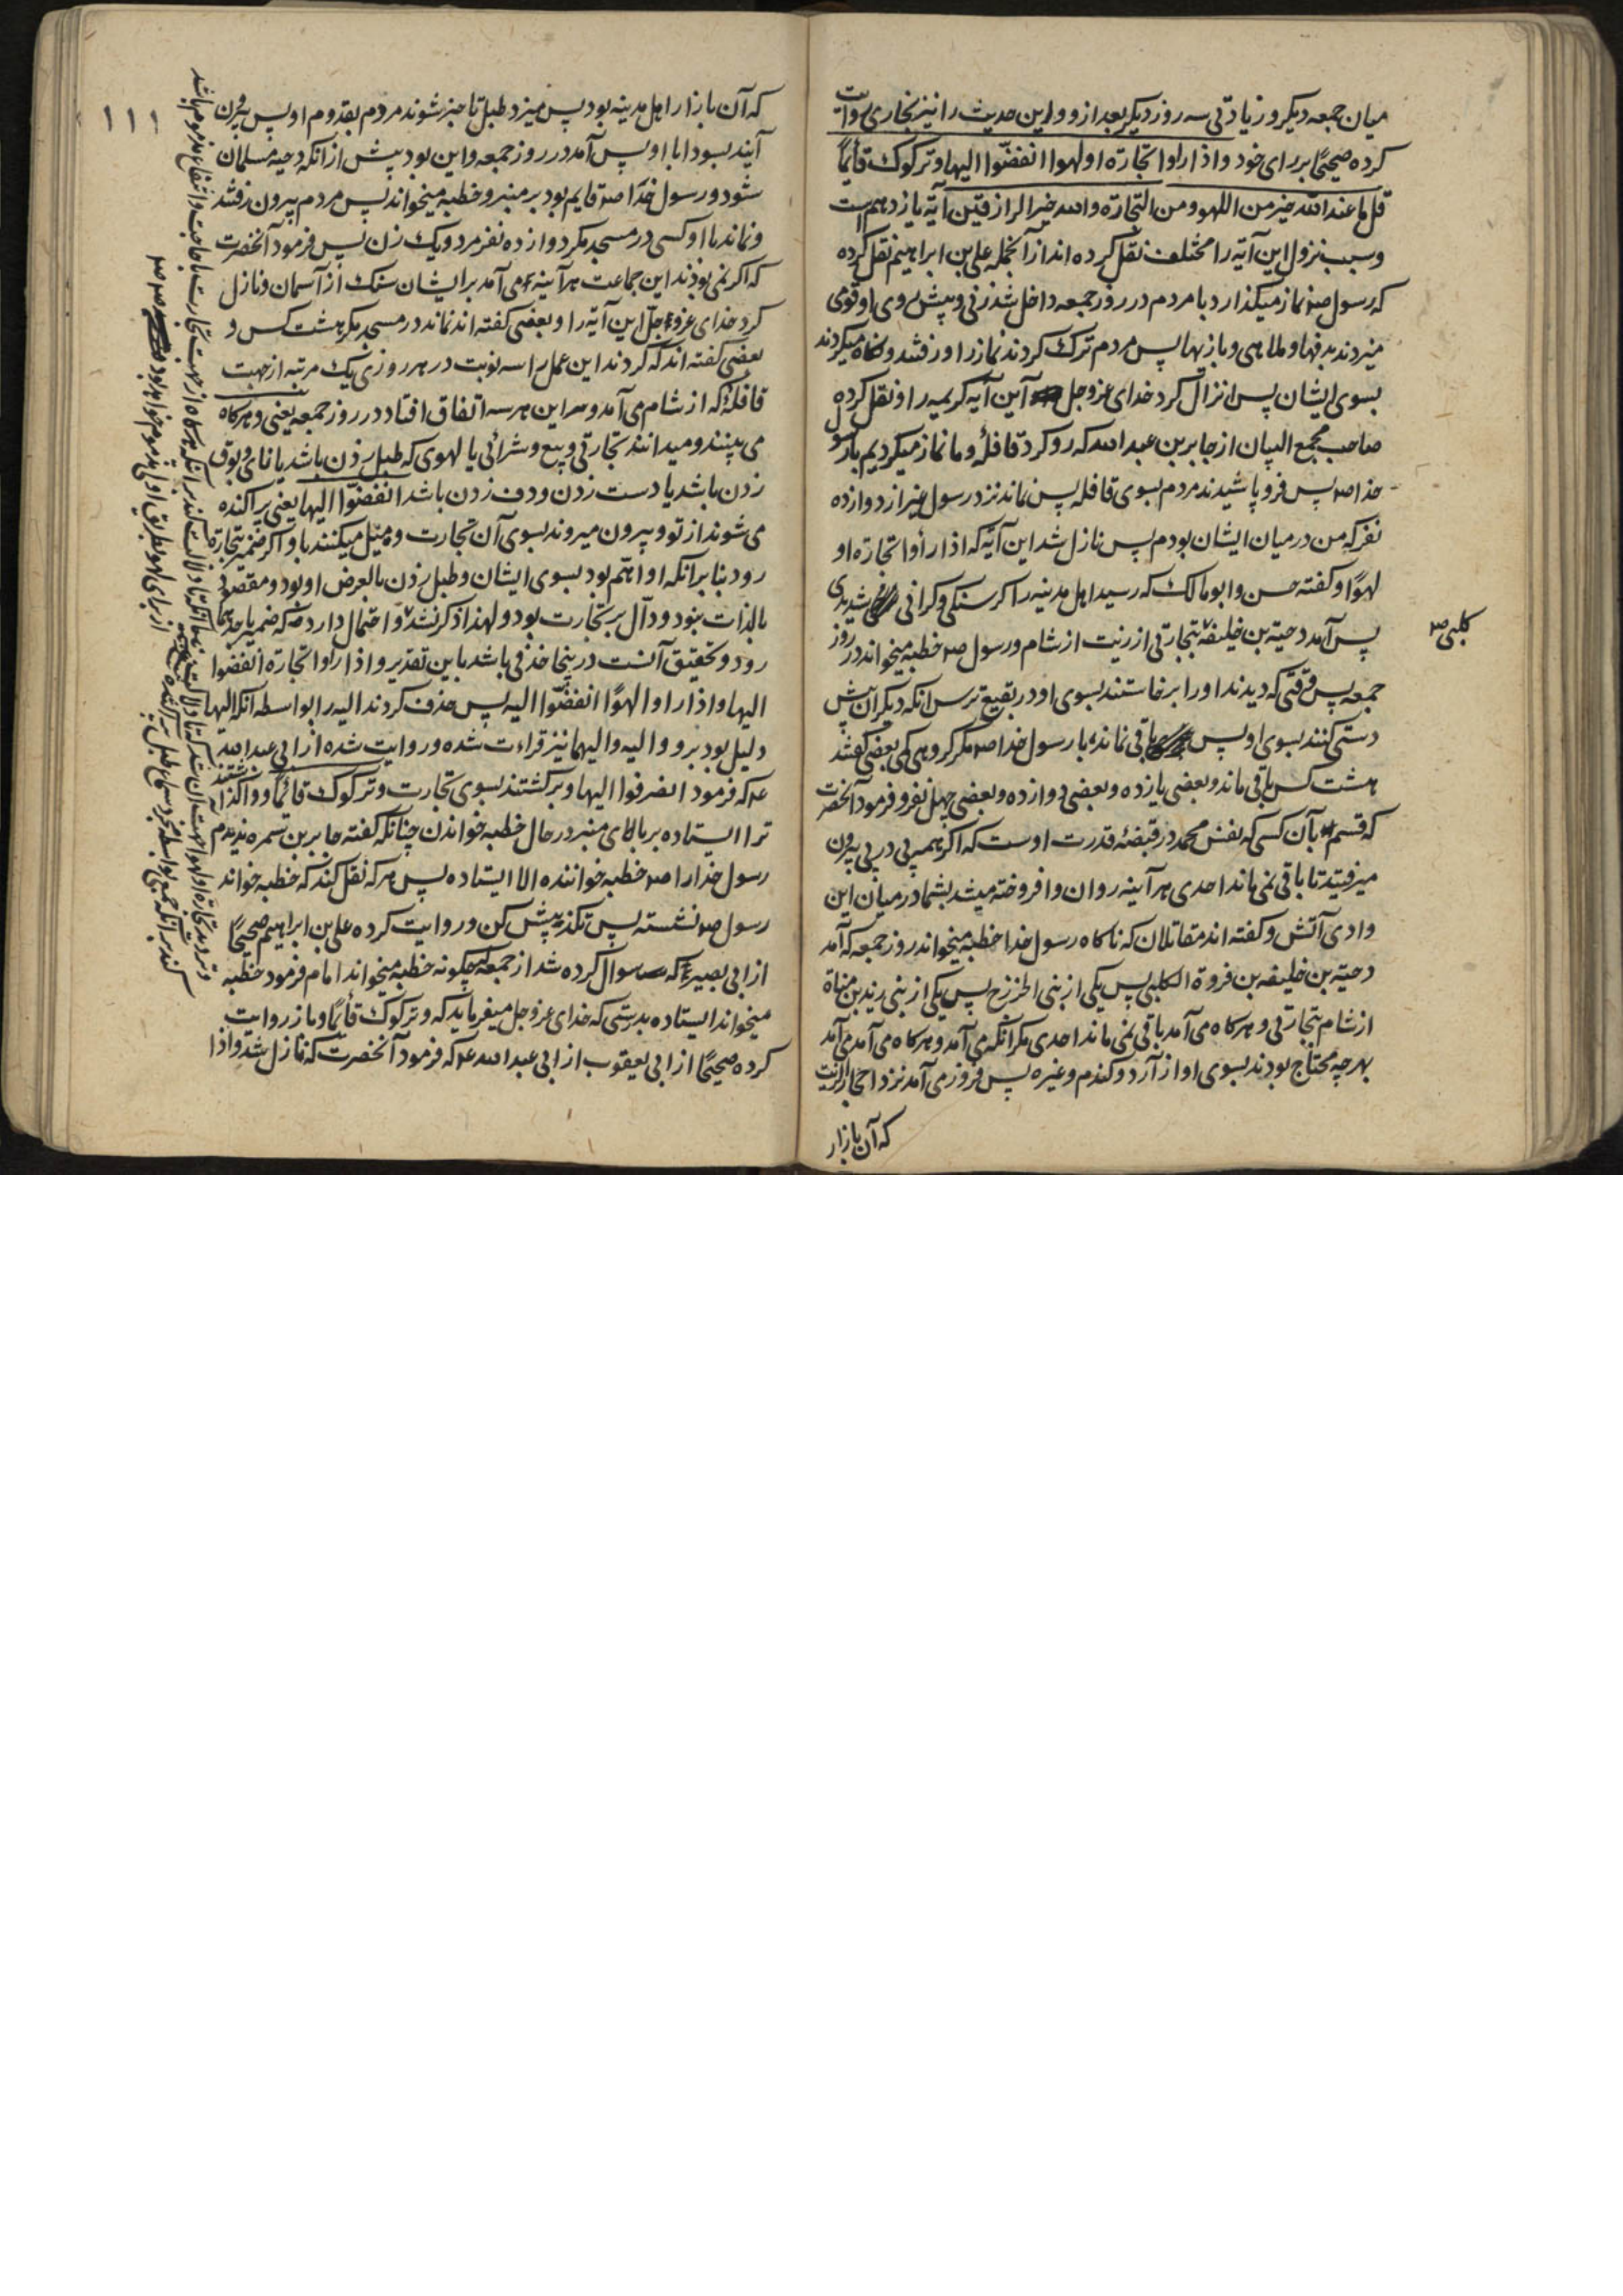 میان جمعه دیکر و زیادتی سه روز دیکر بعد از و و این حدیث را نیز بخاری روایت
کرده صحیحًا بر رای خود و اذا راوا تجارة او لهوا انفضّوا الیها و ترکوک قائمًا
قل ما عند الله خیر من اللهو و من التجارة والله خیر الرازقین آیه یازدهم است
و سبب نزول این آیه را مختلف نقل کرده اند از آنجمله علی بن ابراهیم نقل کرده
که رسول صم نماز میکذارد با مردم در روز جمعه داخل شد زنی و پیش روی او قومی
میزدند بدفها و ملاهی و بازیها پس مردم ترک کردند نماز را و رفتند و نکاه میکردند
بسوی ایشان پس انزال کرد خدای عزوجل این آیه کریمه را و نقل کرده
صاحب مجمع البیان از جابر بن عبد الله که رو کرد قافلهٔ و ما نماز میکردیم با رسول
خدا صم پس فرو پاشیدند مردم بسوی قافله پس نماند نزد رسول غیر از دوازده
نفر که من در میان ایشان بودم پس نازل شد این آیه که اذا رأوا تجارة او
لهوًا و کفته حسن و ابو مالک که رسید اهل مدینه را کرسنکی و کرانی شدیدی
پس آمد دحیة بن خلیفه بتجارتی از زیت از شام و رسول صم خطبه میخواند در روز
کلبی صم
جمعه پس وقتی که دیدند او را برخاستند بسوی او در بقیع ترس انکه دیکران پیش
دستی کنند بسوی او پس باقی نماند با رسول خدا صم مکر کروهی کمی بعضی کفتند
هشت کس باقی ماند و بعضی یازده و بعضی دوازده و بعضی چهل نفر و فرمود آنحضرت
که قسم بآن کسی که نفس محمد در قبضهٔ قدرت اوست که اکر همه پی در پی بیرون
میرفتید تا باقی نمی ماند احدی هر آینه روان و افروخته میشد بشما در میان این
وادی آتش و کفته اند مقاتلان که ناکاه رسول خدا خطبه میخواند روز جمعه که آمد
دحیة بن خلیفه بن فروة الکلبی پس یکی از بنی الخزرج پس یکی از بنی زید بن مناة
از شام بتجارتی و هرکاه می آمد باقی نمی ماند احدی مکر آنکه می آمد و هرکاه می آمد می آمد
بهرچه محتاج بودند بسوی او از آرد و کندم و غیره پس فرود می آمد نزد احجار الزیت
که آن بازار
که آن بازار اهل مدینه بود پس میزد طبل تا خبر شوند مردم بقدوم او پس بیرون
آیند بسودا با او پس آمد در روز جمعه و این بود پیش از انکه دحیه مسلمان
شود و رسول خدا صم قایم بود بر منبر و خطبه میخواند پس مردم بیرون رفتند
و نماند با او کسی در مسجد مکر دوازده نفر مرد و یک زن پس فرمود آنحضرت
که اکر نمی بودند این جماعت هر آینه می آمد بر ایشان سنک از آسمان و نازل
کرد خدای عزوجل این آیه را و بعضی کفته اند نماند در مسجد مکر هشت کس و
بعضی کفته اند که کردند این عمل را سه نوبت در هر روزی یک مرتبه از جهت
قافلهٔ که از شام می آمد و هر این هر سه اتفاق افتاد در روز جمعه یعنی و هرکاه
می بینند و میدانند تجارتی و بیع و شرائی یا لهوی که طبل زدن باشد یا نای و بوق
زدن باشد یا دست زدن و دف زدن باشد انفضّوا الیها یعنی پراکنده
می شوند از تو و بیرون میروند بسوی آن تجارت و میل میکنند باو اکر ضمیر بتجارة
رود بنا بر انکه او اهّم بود بسوی ایشان و طبل زدن بالعرض او بود و مقصود
بالذات نبود و دال بر تجارت بود و لهذا ذکر نشد و احتمال دارد که ضمیر باحدهما
رود و تحقیق آنست در ینجا حذفی باشد باین تقدیر و اذا رأوا تجارة انفضوا
الیها و اذا راوا لهوًا انفضّوا الیه پس حذف کردند الیه را بواسطه انکه الیها
دلیل بود برو و الیه و الیهما نیز قراءت شده و روایت شده از ابی عبد الله
عم که فرمود انصرفوا الیها و برکشتند بسوی تجارت و ترکوک قائمًا و واکذاشتند
ترا ایستاده بر بالای منبر در حال خطبه خواندن چنانکه کفته جابر بن سمره ندیدم
رسول خدا را صم خطبه خواننده الا ایستاده پس هر که نقل کند که خطبه خواند
رسول صم نشسته پس تکذیبش کن و روایت کرده علی بن ابراهیم صحیحًا
از ابی بصیر که سوال کرده شد از جمعه که چکونه خطبه میخواند امام فرمود خطبه
میخواند ایستاده بدرستی که خدای عزوجل میفرماید که و ترکوک قائمًا و باز روایت
کرده صحیحًا از ابی یعقوب از ابی عبد الله عم که فرمود آنحضرت که نازل شد و اذا
۱۱۱